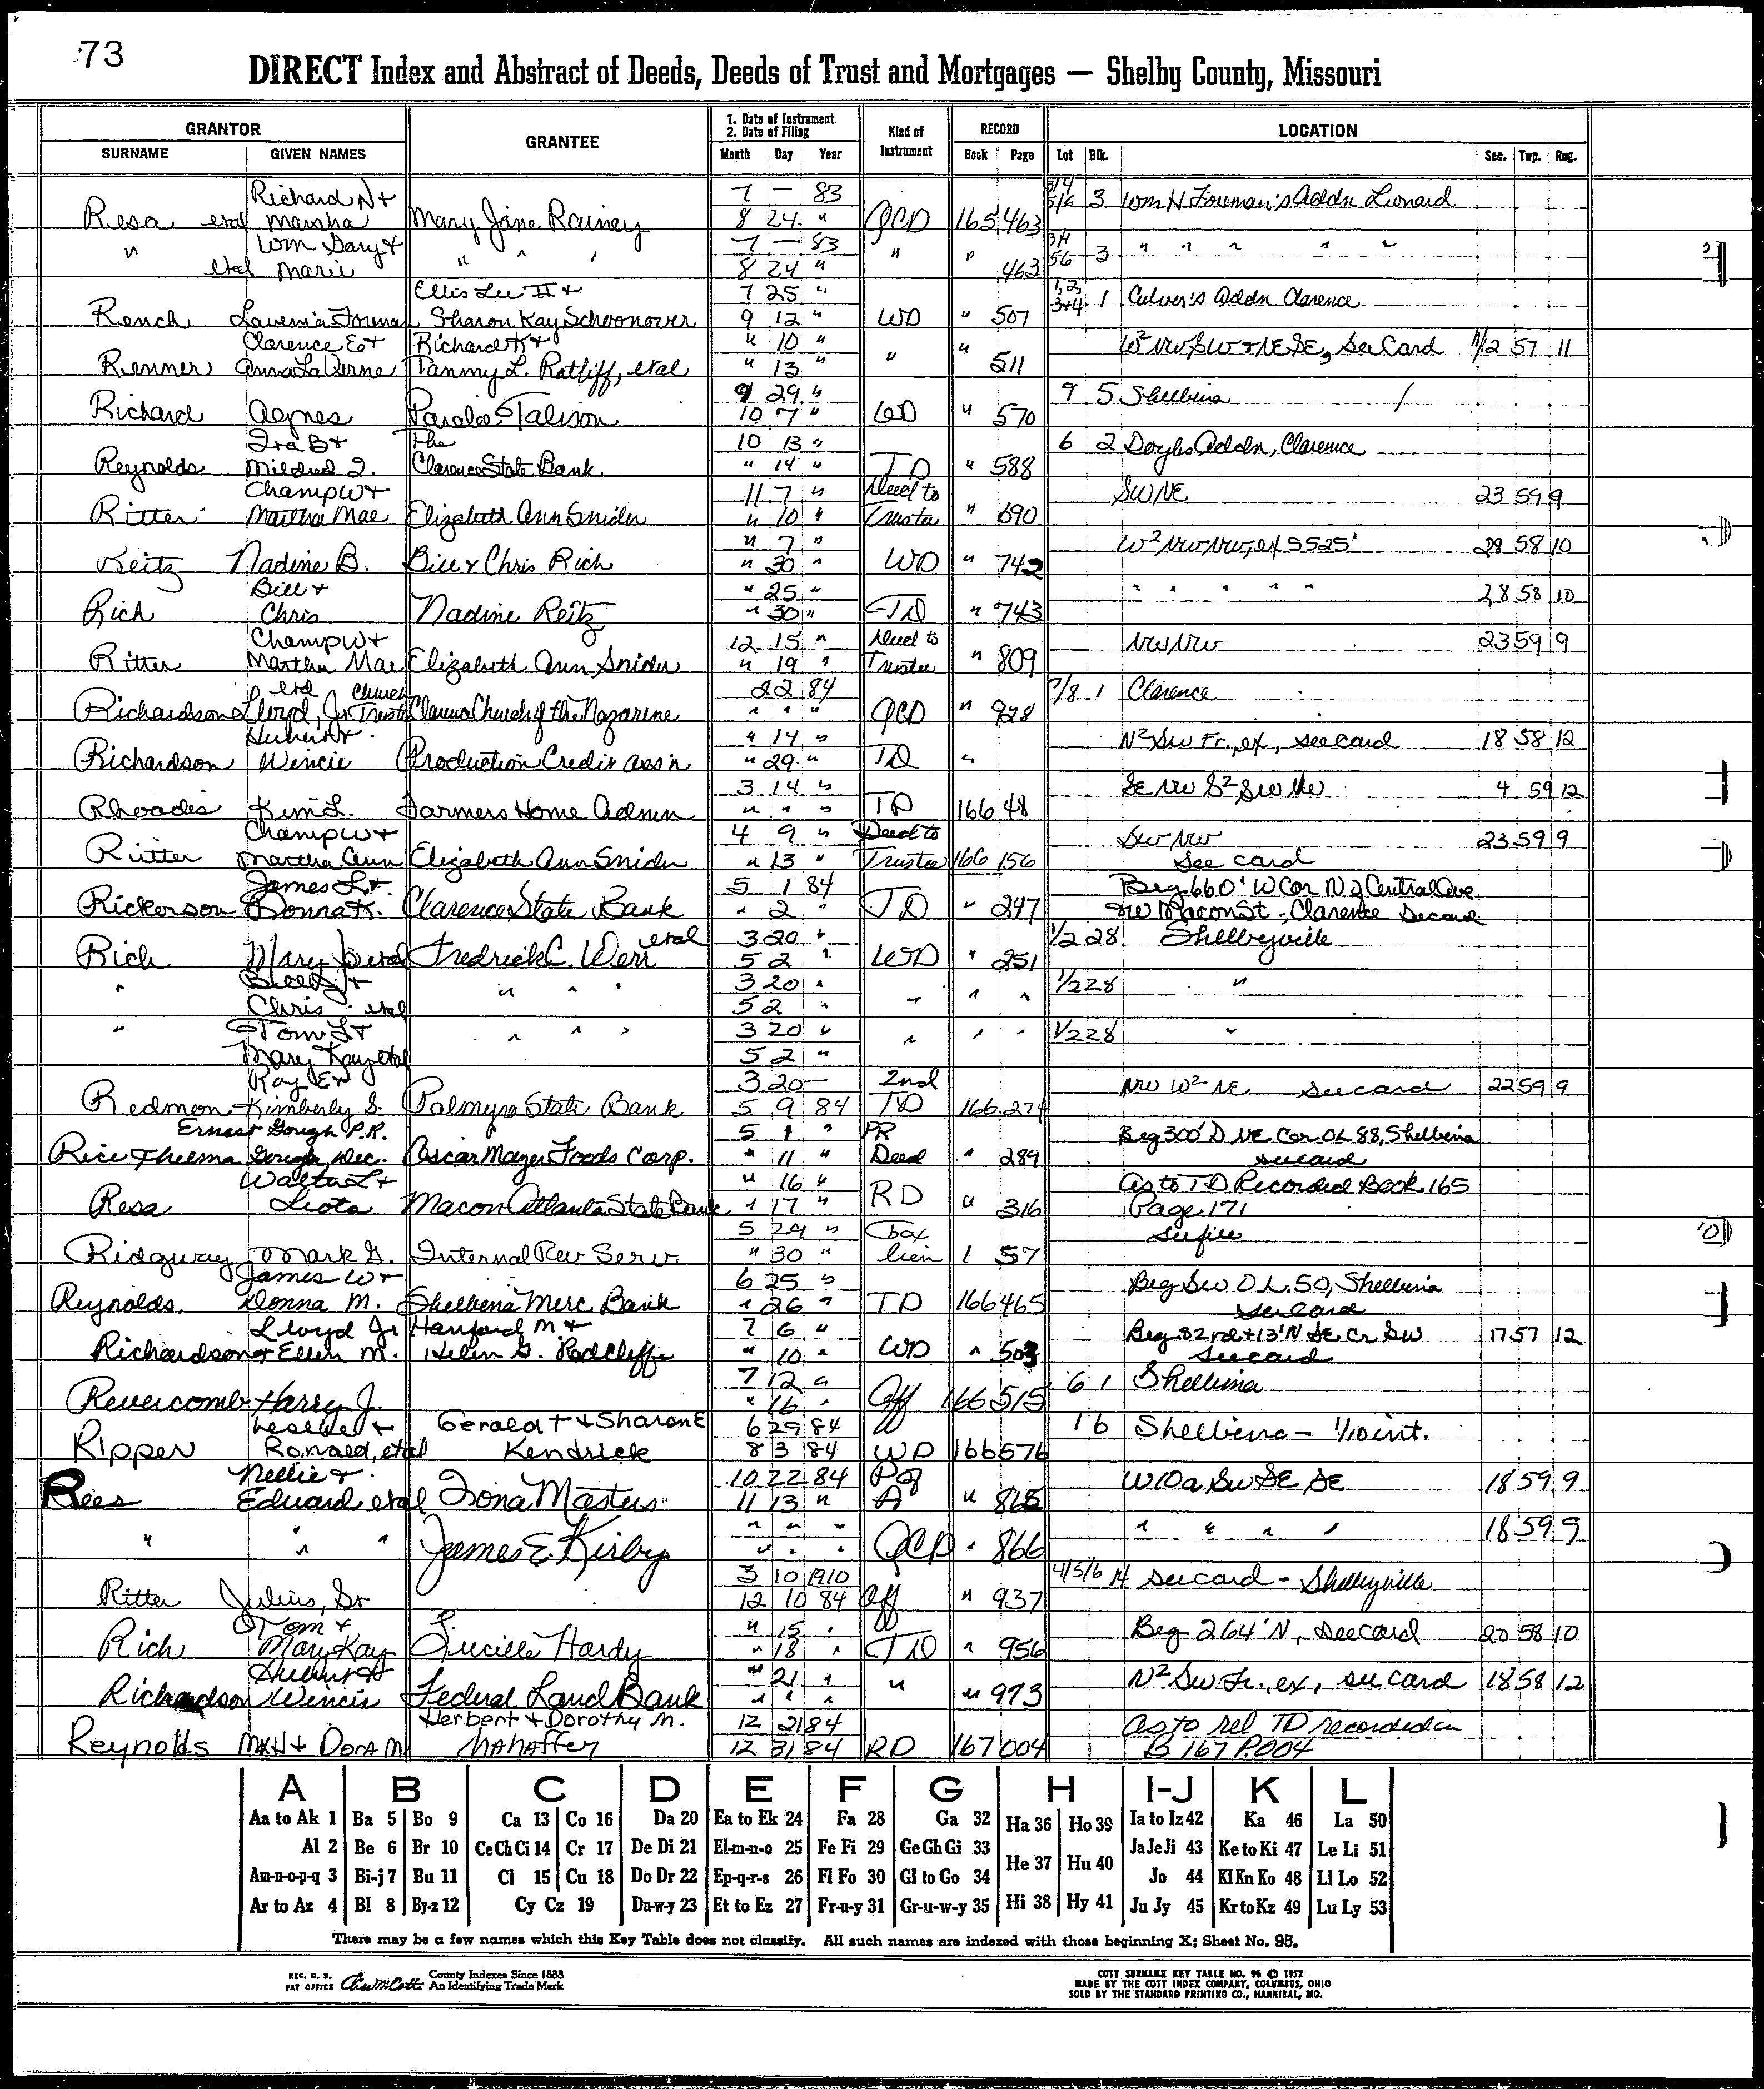 73
DIRECT Index and Abstract of Deeds, Deeds of Trust and Mortgages — Shelby County, Missouri
GRANTOR GRANTEE 1. Date of Instrument 2. Date of Filing Kind of Instrument RECORD LOCATION
SURNAME GIVEN NAMES Month Day Year Book Page Lot Blk. Sec. Twp. Rng.
Richard N + 7 — 83 3/4
Resa etal Marsha Mary Jane Rainey 8 24 " QCD 165 463 5/6 3 Wm H Foreman's Addn Leonard
" Wm Gary + " " " 7 — 83 " " 3/4 3 " " " " "
etal Marie 8 24 " 463 56
Ellis Lee II + 7 25 " 1, 2,
Rench Lavenia Foreman Sharon Kay Schoonover 9 12 " WD " 507 3+4 1 Culver's Addn Clarence
Clarence E + Richard K + " 10 " W² NW SW + NE SE, See Card 11/2 57 11
Renner Anna LaVerne Tammy L. Ratliff, etal " 13 " " " 511
9 29 " 9 5 Shelbina
Richard Agnes Talison 10 7 " WD " 570
Ira B + The 10 13 " 6 2 Doyles Addn, Clarence
Reynolds Mildred I. Clarence State Bank " 14 " TD " 588
Champ W + 11 7 " Deed to SW NE 23 59 9
Ritter Martha Mae Elizabeth Ann Snider " 10 " Trustee " 690
" 7 " W² NW NW, ex S 525' 28 58 10
Reitz Nadine B. Bill + Chris Rich " 30 " WD " 742
Bill + " 25 " " " " " " 28 58 10
Rich Chris Nadine Reitz " 30 " TD " 743
Champ W + 12 15 " Deed to NW NW 23 59 9
Ritter Martha Mae Elizabeth Ann Snider " 19 " Trustee " 809
etal Church 2 2 84 7/8 1 Clarence
Richardson Lloyd, Jr Trust Clarence Church of the Nazarene " " " QCD " 928
Hubert + " 14 " N² SW Fr., ex, see card 18 58 12
Richardson Wincie Production Credit Ass'n " 29 " TD "
3 14 " SE NW S² SW NW 4 59 12
Rhoades Kim L. Farmers Home Admn " " " TD 166 48
Champ W + 4 9 " Deed to SW NW 23 59 9
Ritter Martha Ann Elizabeth Ann Snider " 13 " Trustee 166 156 See card
James L + 5 1 84 Beg 660' W Cor N 2 Central Ave
Rickerson Donna K. Clarence State Bank " 2 " TD " 247 + W Macon St - Clarence See card
etal 3 20 " 1/2 28 Shelbyville
Rich Mary Jo etal Fredrick C. Werr 5 2 " WD " 251
" Bill + " " " 3 20 " " " " 1/2 28 "
Chris etal 5 2 "
" Tom L + " " " 3 20 " " " " 1/2 28 "
Mary Kay etal 5 2 "
Ray E + 3 20 — 2nd NW W² NE See card 22 59 9
Redmon Kimberly S. Palmyra State Bank 5 9 84 TD 166 274
Ernest Gough P.R. 5 1 " PR Beg 300' D NE Cor OL 88, Shelbina
Rice Thelma Gough, Dec. Oscar Mayer Foods Corp. " 11 " Deed " 289 see card
Walter L + " 16 " As to TD Recorded Book 165
Resa Leota Macon Atlanta State Bank " 17 " RD " 316 Page 171
5 29 " Tax See file
Ridgway Mark G. Internal Rev Serv. " 30 " lien 1 57
James W + 6 25 " Beg SW O.L. 50, Shelbina
Reynolds Donna M. Shelbina Merc. Bank " 26 " TD 166 465 See card
Lloyd Jr Hanford M + 7 6 " Beg 82 rd + 13' N SE Cr SW 17 57 12
Richardson + Ellen M. Helen G. Radcliffe " 10 " WD " 503 See card
7 12 " 6 1 Shelbina
Revercomb Harry J. " 16 " Aff 166 515
+ Gerald T + Sharon E 6 29 84 1 6 Shelbina — 1/10 int.
Ripper Ronald, etal Kendrick 8 3 84 WD 166 576
Nellie + 10 22 84 P of W 10 a SW SE SE 18 59 9
Rees Edward etal Iona Masters 11 13 " A " 865
" " " " " " " " " " " 18 59 9
" James E. Kirby " " " QCD " 866
3 10 1910 4/5/6 14 see card - Shelbyville
Ritter Julius, Sr 12 10 84 Aff " 937
Tom + " 15 " Beg 264' N, see card 20 58 10
Rich Mary Kay Lucille Hardy " 18 " TD " 956
Hubert + " 21 " N² SW Fr., ex, see card 18 58 12
Richardson Wincie Federal Land Bank " " " " " 973
Herbert + Dorothy M. 12 21 84 As to rel TD recorded in
Reynolds Max H + Dora M Mahaffey 12 31 84 RD 167 004 B 167 P.004
A B C D E F G H I-J K L
Aa to Ak 1 Ba 5 Bo 9 Ca 13 Co 16 Da 20 Ea to Ek 24 Fa 28 Ga 32 Ha 36 Ho 39 Ia to Iz 42 Ka 46 La 50
Al 2 Be 6 Br 10 Ce Ch Ci 14 Cr 17 De Di 21 El-m-n-o 25 Fe Fi 29 Ge Gh Gi 33 He 37 Hu 40 Ja Je Ji 43 Ke to Ki 47 Le Li 51
Am-n-o-p-q 3 Bi-j 7 Bu 11 Cl 15 Cu 18 Do Dr 22 Ep-q-r-s 26 Fl Fo 30 Gl to Go 34 Jo 44 Kl Kn Ko 48 Ll Lo 52
Ar to Az 4 Bl 8 By-z 12 Cy Cz 19 Du-w-y 23 Et to Ez 27 Fr-u-y 31 Gr-u-w-y 35 Hi 38 Hy 41 Ju Jy 45 Kr to Kz 49 Lu Ly 53
There may be a few names which this Key Table does not classify. All such names are indexed with those beginning X; Sheet No. 95.
REG. U. S. PAT OFFICE County Indexes Since 1888 An Identifying Trade Mark
COTT SURNAME KEY TABLE NO. 96 © 1952
MADE BY THE COTT INDEX COMPANY, COLUMBUS, OHIO
SOLD BY THE STANDARD PRINTING CO., HANNIBAL, MO.